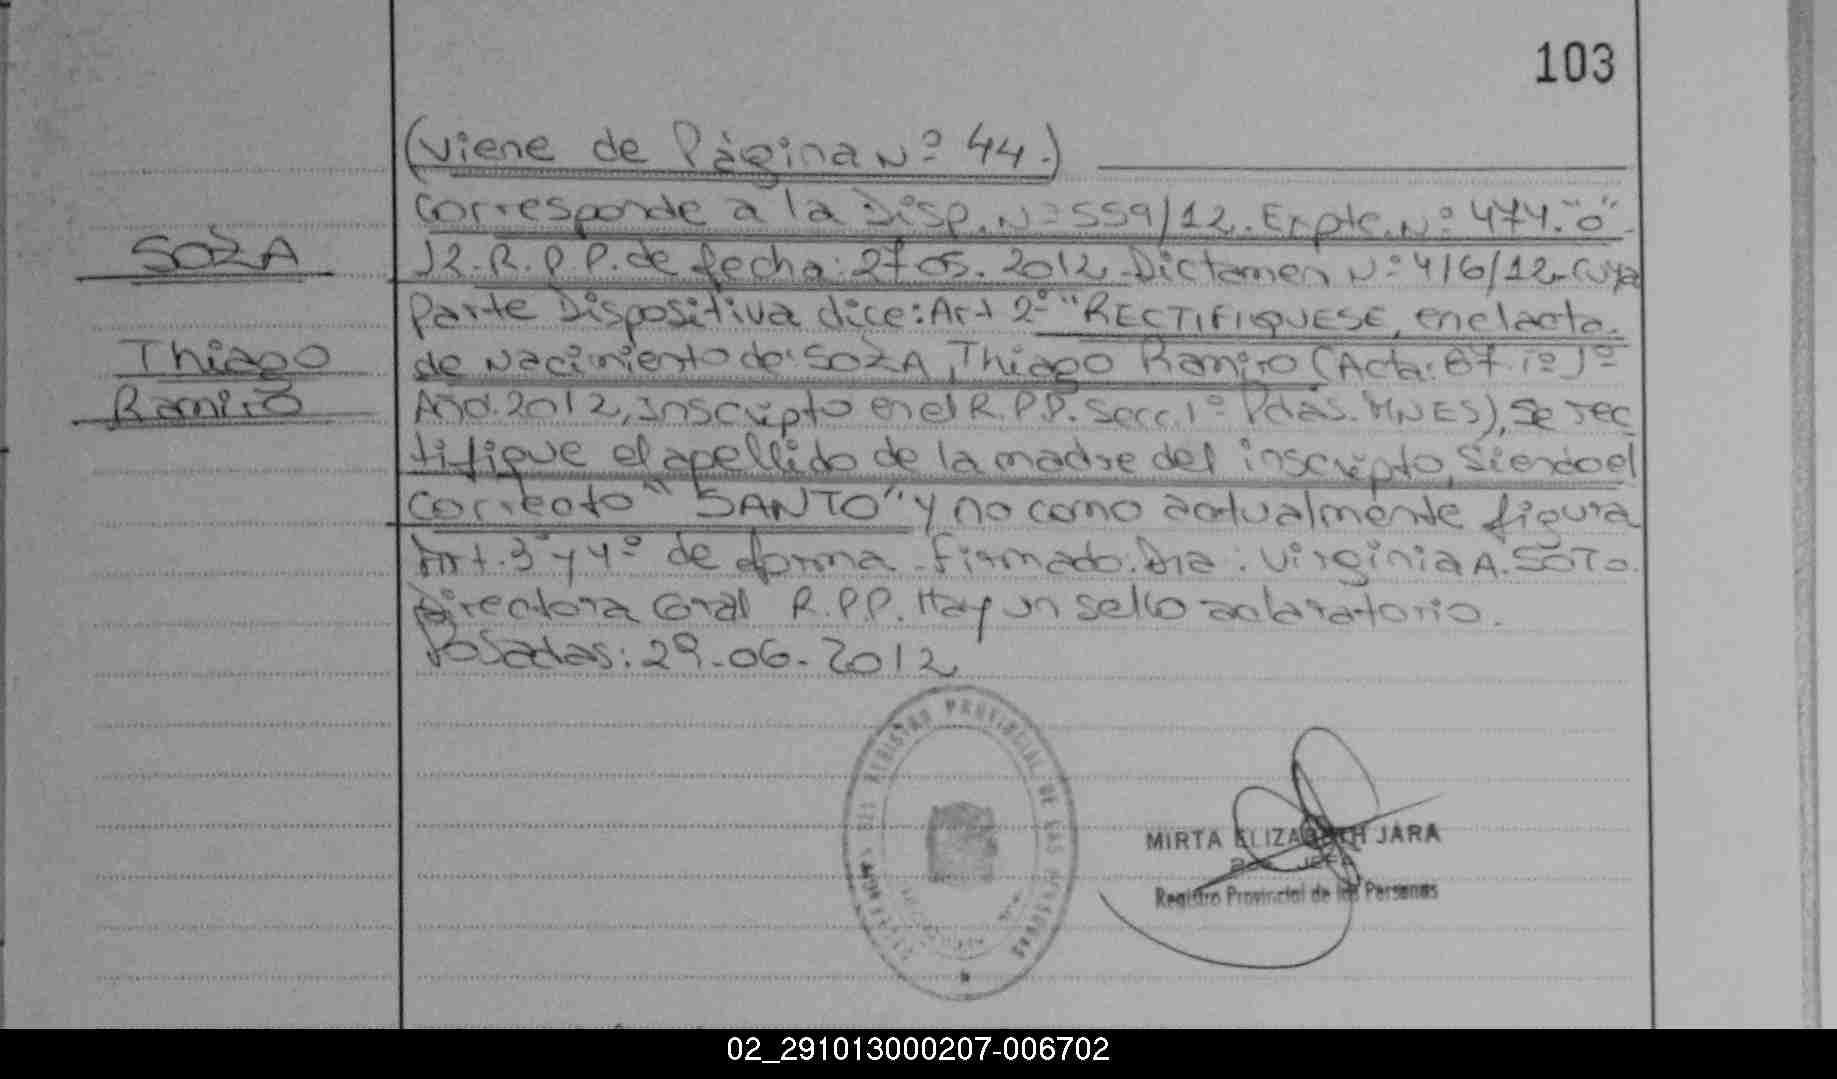 103
(Viene de Página Nº 44.)
Corresponde a la Disp. Nº 559/12. Expte. Nº 474. "O"
12. R.P.P. de fecha: 27 05. 2012. Dictamen Nº 416/12. Cuya
SOZA
Parte Dispositiva dice: Art 2º "RECTIFIQUESE, en el acta.
de Nacimiento de: SOZA, Thiago Ramiro (Acta: 87. Tº Iº
Thiago
Año. 2012, inscripto en el R.P.P. Secc. 1º Pdas. MNES), se rec
Ramiro
tifique el apellido de la madre del inscripto, siendo el
correcto "SANTO" y no como actualmente figura
Art. 3º y 4º de forma. Firmado: Dra: Virginia A. SOTO.
Directora Gral R.P.P. Hay un sello aclaratorio.
Posadas: 29-06-2012
REGISTRO PROVINCIAL DE LAS PERSONAS
MIRTA ELIZABETH JARA
JEFA
Registro Provincial de las Personas
02_291013000207-006702